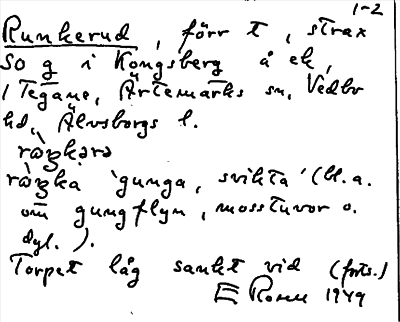 1-2
Runkerud, förr t, strax
So g i Kongsberg å ek,
i Tegane, Ärtemarks sn, Vedbo
hd, Älvsborgs l.
'gunga, svikta' (bl.a.
om gungflyn, mosstuvor o.
dyl.).
Torpet låg sankt vid (forts.)
E Rosen 1949